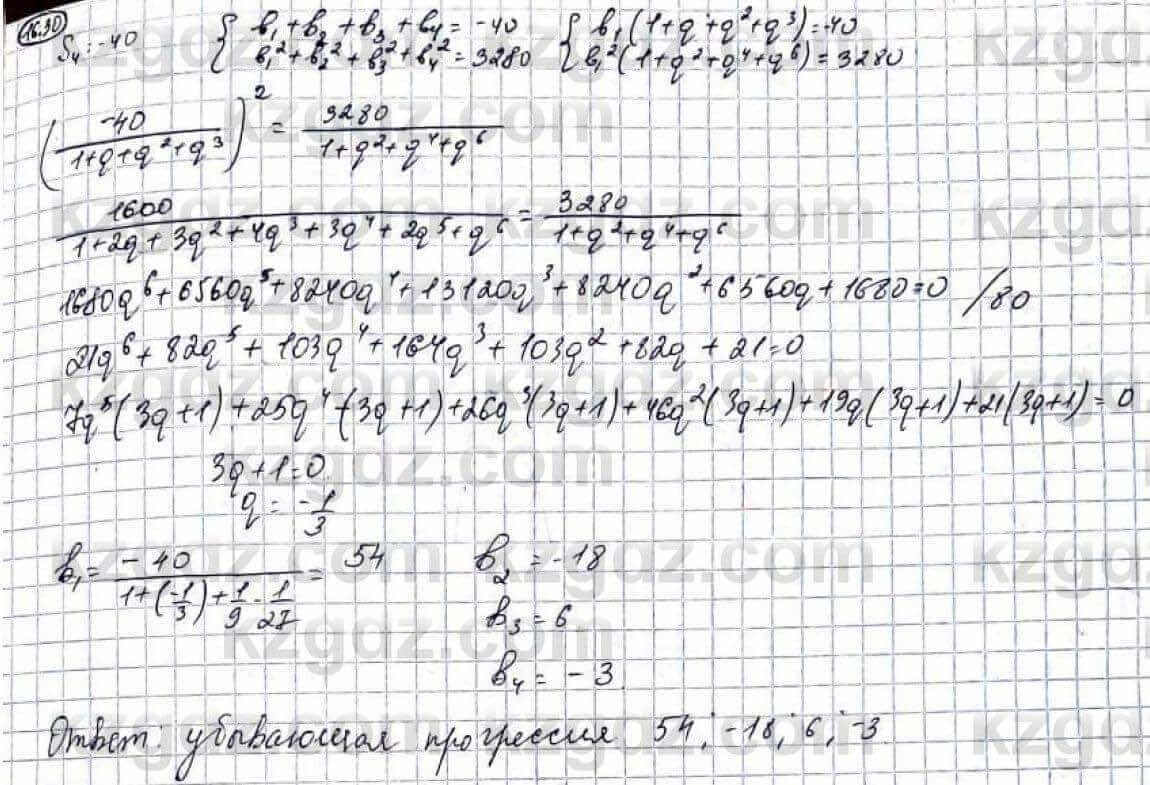 16.30
S₄ = -40 { b₁+b₂+b₃+b₄ = -40 { b₁(1+q+q²+q³) = -40
b₁²+b₂²+b₃²+b₄² = 3280 b₁²(1+q²+q⁴+q⁶) = 3280
(-40/(1+q+q²+q³))² = 3280/(1+q²+q⁴+q⁶)
1600/(1+2q+3q²+4q³+3q⁴+2q⁵+q⁶) = 3280/(1+q²+q⁴+q⁶)
1680q⁶+6560q⁵+8240q⁴+13120q³+8240q²+6560q+1680=0 /80
21q⁶+82q⁵+103q⁴+164q³+103q²+82q+21=0
7q⁵(3q+1)+25q⁴(3q+1)+26q³(3q+1)+46q²(3q+1)+19q(3q+1)+21(3q+1)=0
3q+1=0
q = -1/3
b₁ = -40/(1+(-1/3)+1/9-1/27) = 54 b₂ = -18
b₃ = 6
b₄ = -3
Ответ: убывающая прогрессия 54; -18; 6; -3
kzgdz.com